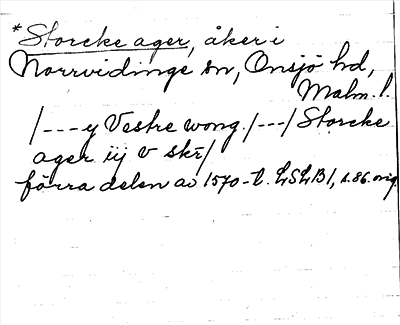 *Storcke ager, åker i
Norrvidinge sn, Onsjö hd,
Malm. l.
/---y Vestre wong. /---/ Storcke
ager iij v skr̄/
förra delen av 1570-t. LSLB1, s. 86. orig.